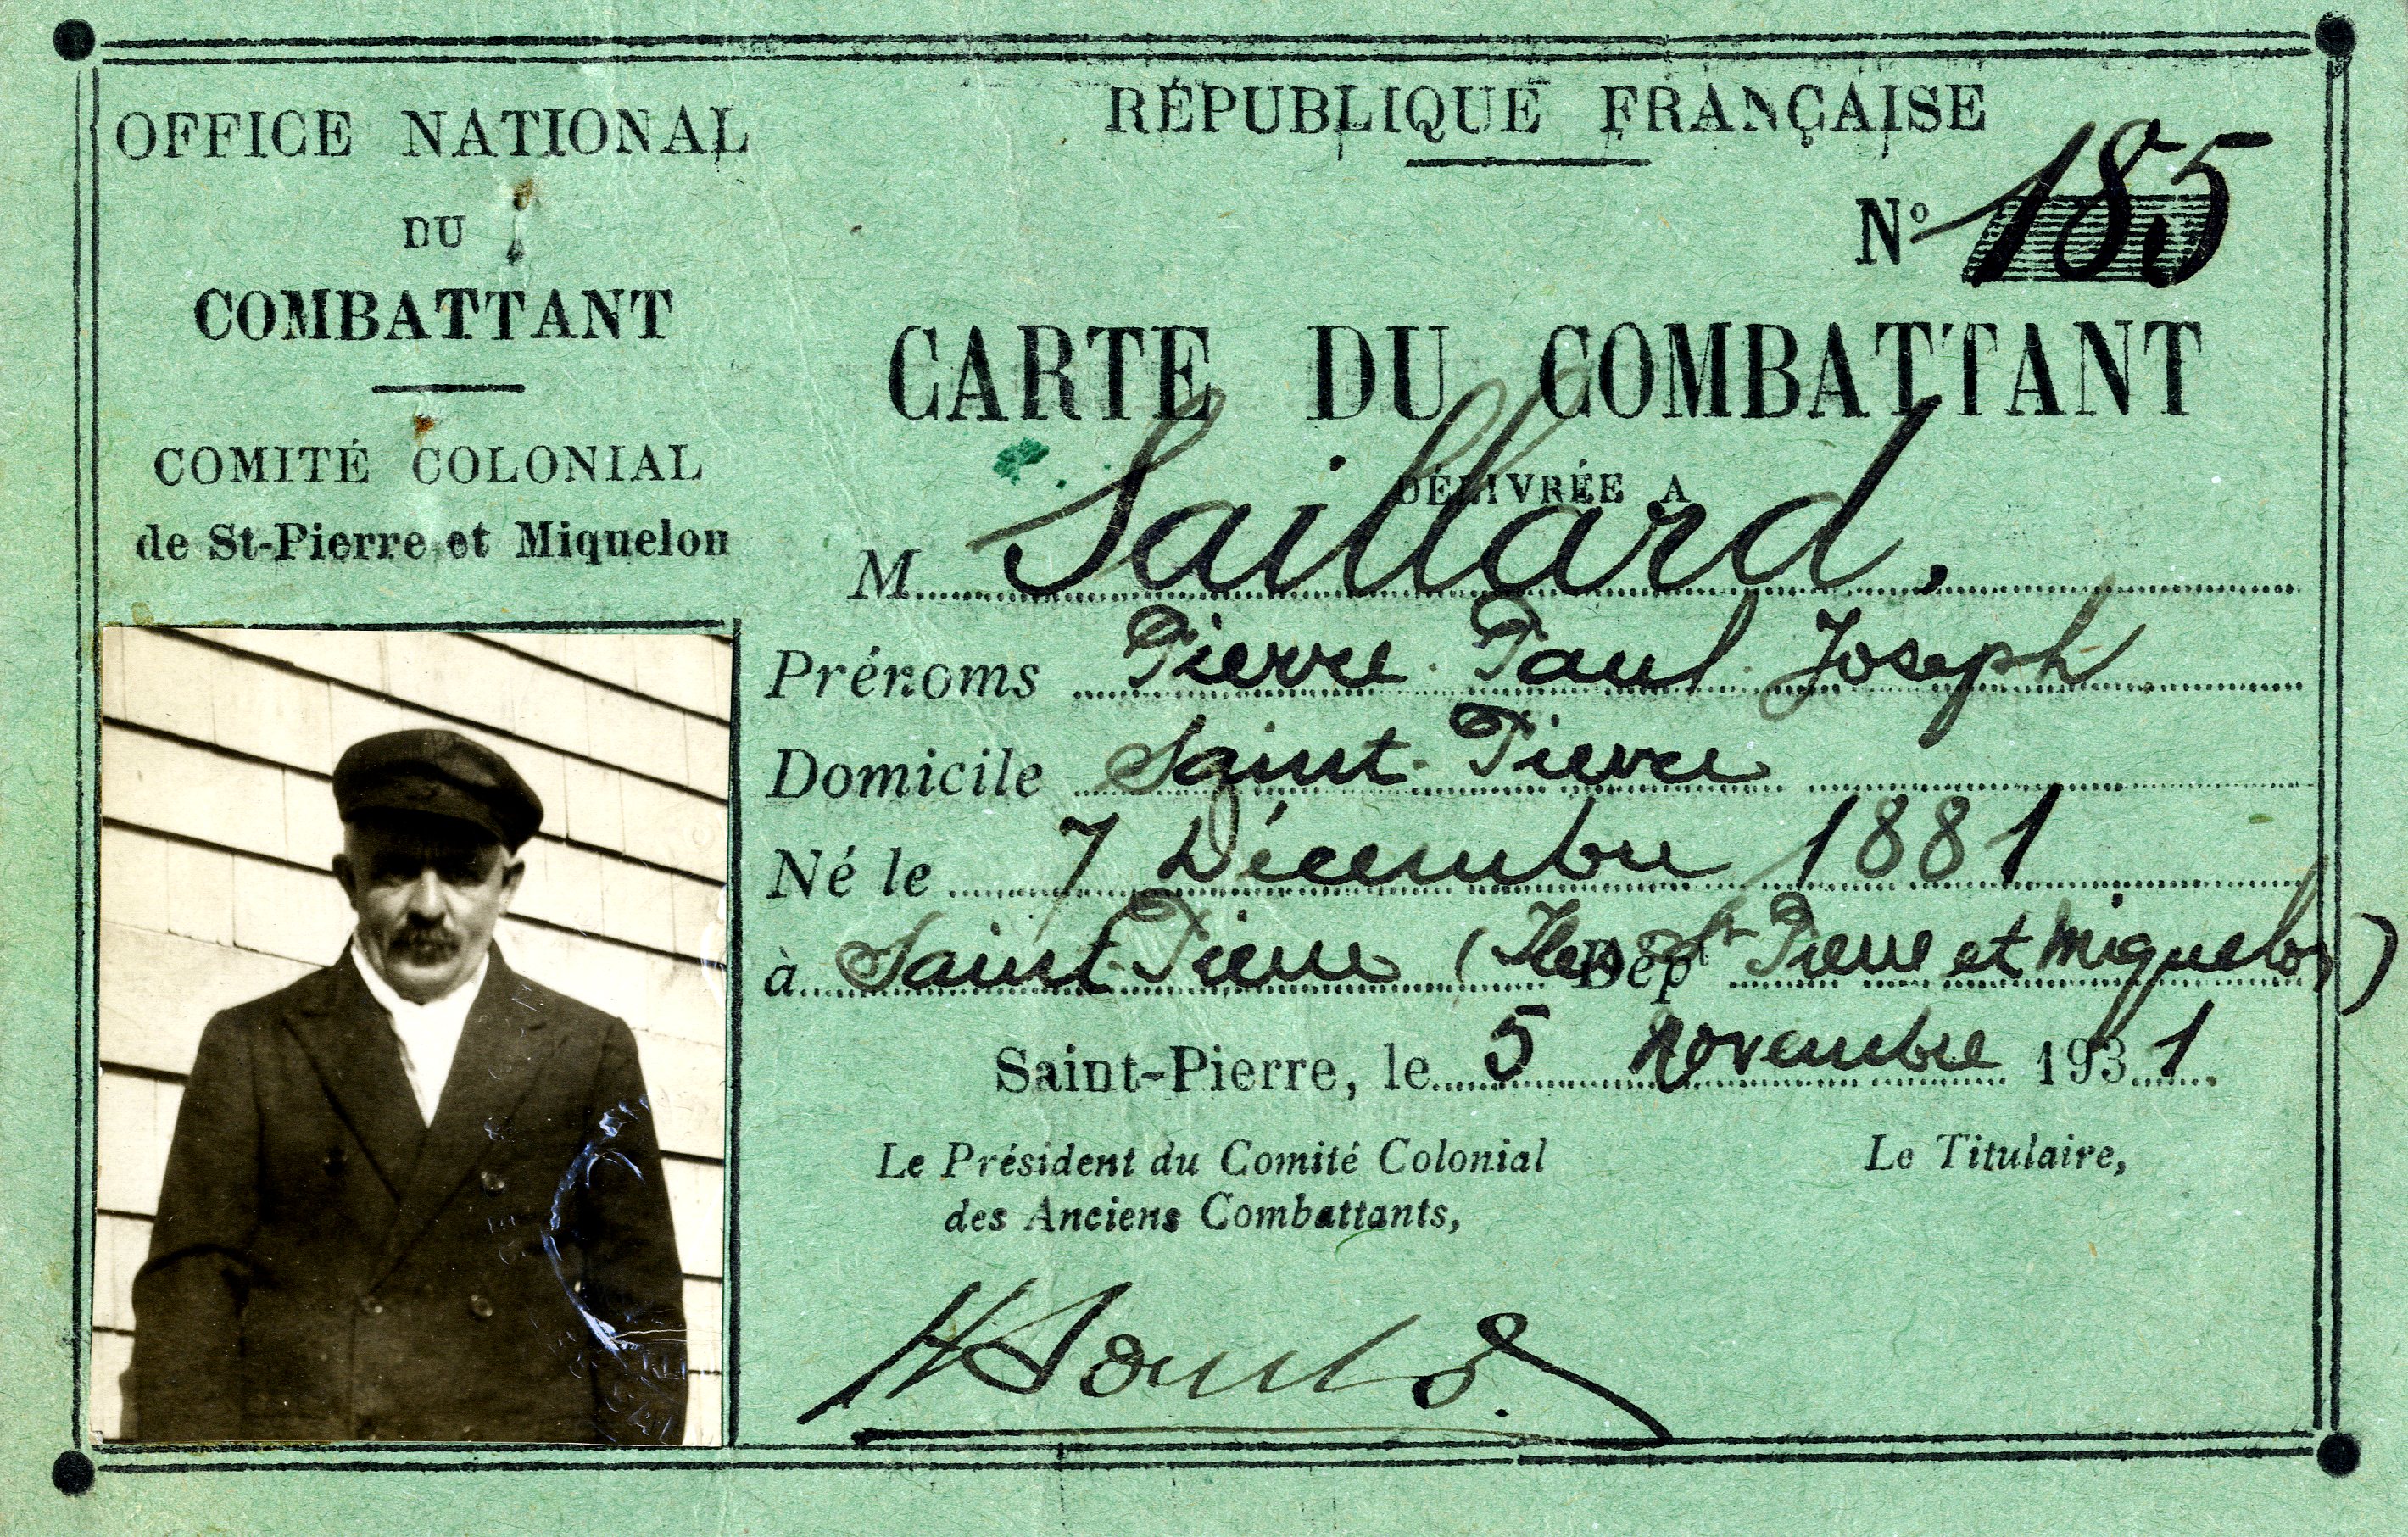 OFFICE NATIONAL
DU
COMBATTANT
COMITÉ COLONIAL
de St-Pierre et Miquelon
RÉPUBLIQUE FRANÇAISE
Nº 185
CARTE DU COMBATTANT
DÉLIVRÉE A
M Saillard,
Prénoms Pierre Paul Joseph
Domicile Saint-Pierre
Né le 7 Décembre 1881
à Saint-Pierre (Iles Dépt St Pierre et Miquelon)
Saint-Pierre, le 5 Novembre 1931
Le Président du Comité Colonial
des Anciens Combattants,
Le Titulaire,